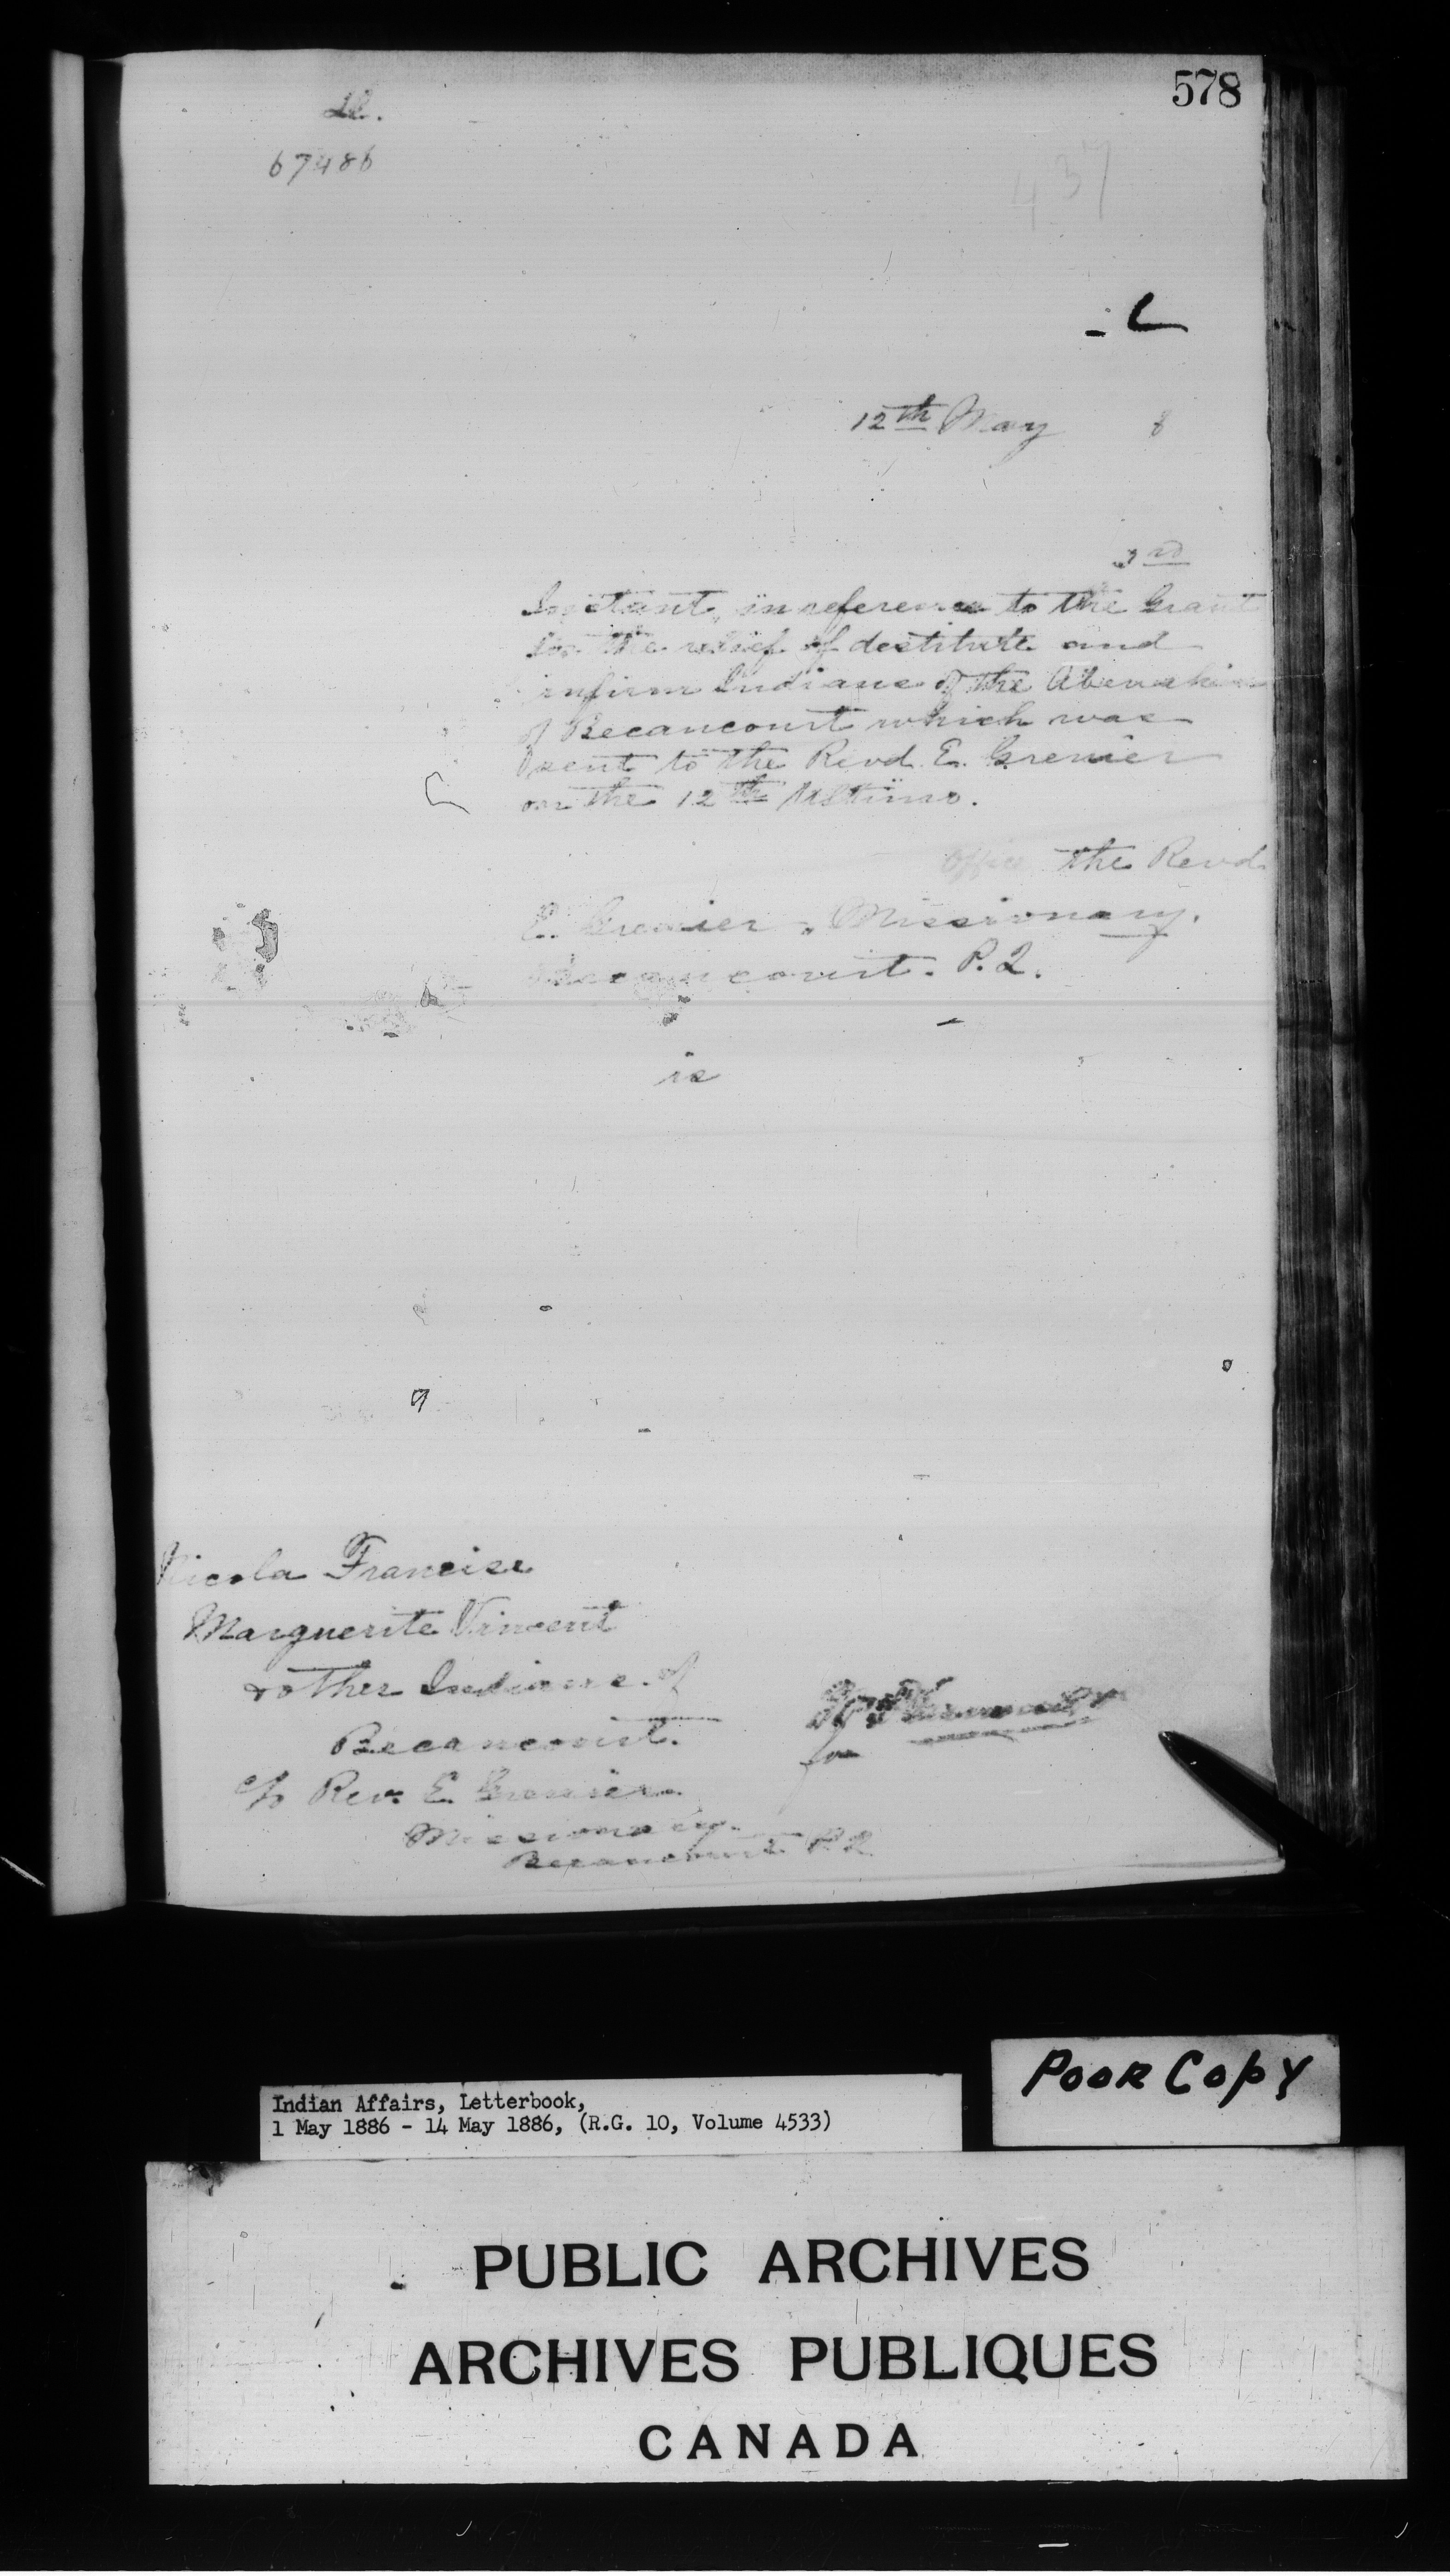 578
67486
437
12th May 8
3rd
Instant, in reference to the Grant
for the relief of destitute and
infirm Indians of the Abenakis
of Becancourt which was
sent to the Revd. E. Grenier
on the 12th Ultimo.
Office the Revd.
E. Grenier, Missionary.
Becancourt. P.Q.
is
Nicola Francise
Marguerite Vincent
& other Indians of
Becancourt.
c/o Rev. E. Grenier.
Missionary.
Becancourt P.Q.
for
POOR COPY
Indian Affairs, Letterbook,
1 May 1886 - 14 May 1886, (R.G. 10, Volume 4533)
PUBLIC ARCHIVES
ARCHIVES PUBLIQUES
CANADA